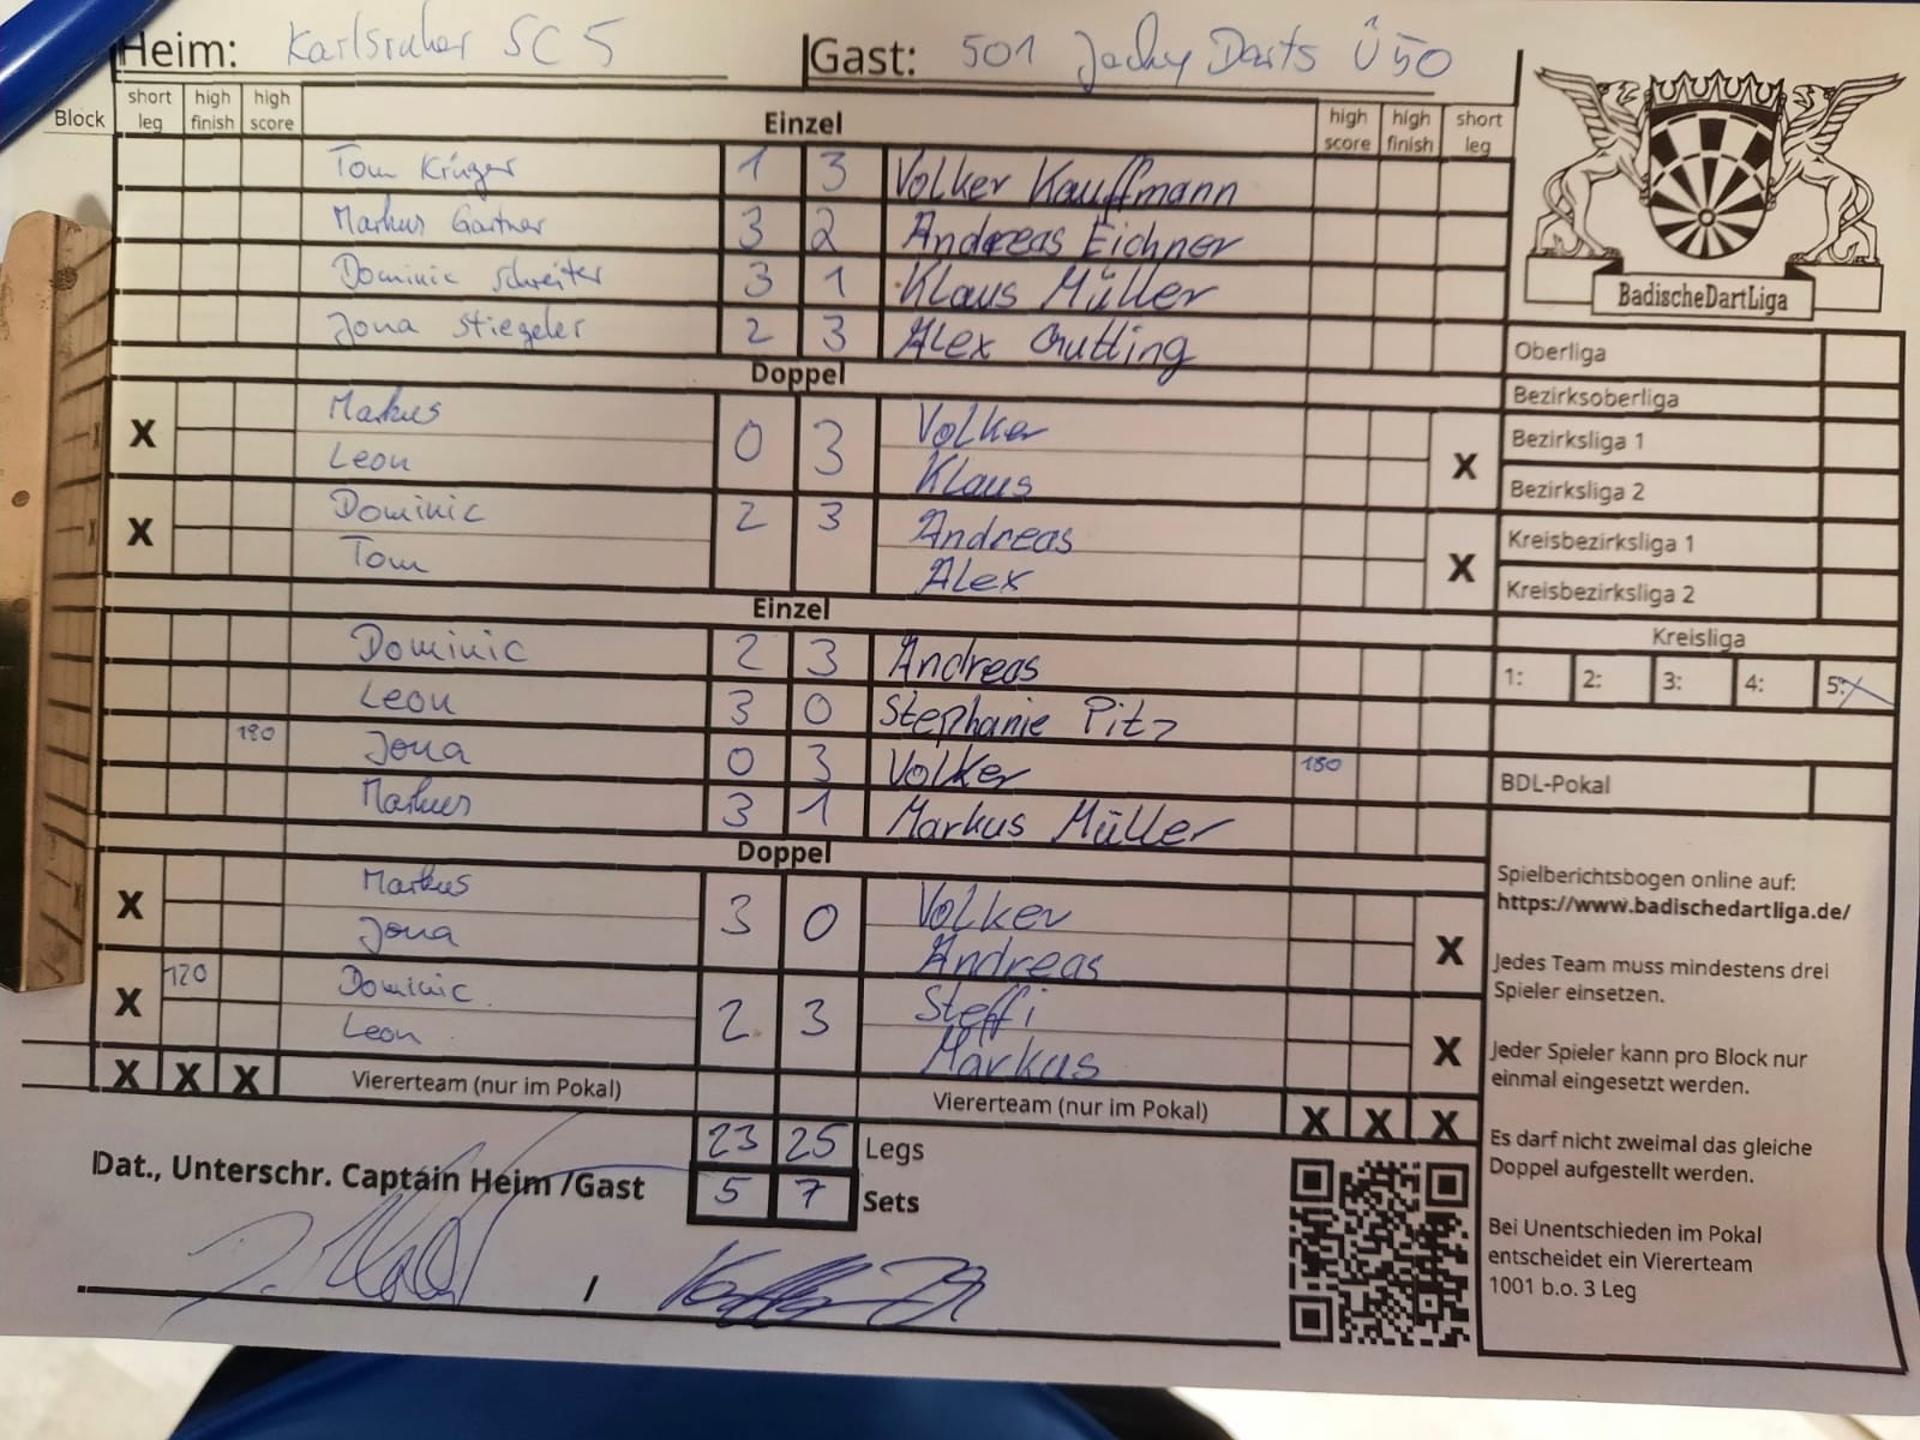 Heim: Karlsruher SC 5 Gast: 501 Jacky Darts Ü50
Block short leg high finish high score Einzel high score high finish short leg
Tom Krüger 1 3 Volker Kauffmann
Markus Gartner 3 2 Andreas Eichner
Dominic Schreiter 3 1 Klaus Müller
Jona Stiegeler 2 3 Alex
Doppel
X Markus 0 3 Volker X
Leon Klaus
X Dominic 2 3 Andreas X
Tom Alex
Einzel
Dominic 2 3 Andreas
Leon 3 0 Stephanie Pitz
180 Jona 0 3 Volker 180
Markus 3 1 Markus Müller
Doppel
X Markus 3 0 Volker X
Jona Andreas
X 120 Dominic 2 3 Steffi X
Leon Markus
X X X Viererteam (nur im Pokal) Viererteam (nur im Pokal) X X X
23 25 Legs
Dat., Unterschr. Captain Heim /Gast 5 7 Sets
/
BadischeDartLiga
Oberliga
Bezirksoberliga
Bezirksliga 1
Bezirksliga 2
Kreisbezirksliga 1
Kreisbezirksliga 2
Kreisliga
1: 2: 3: 4: 5:
BDL-Pokal
Spielberichtsbogen online auf:
https://www.badischedartliga.de/
Jedes Team muss mindestens drei
Spieler einsetzen.
Jeder Spieler kann pro Block nur
einmal eingesetzt werden.
Es darf nicht zweimal das gleiche
Doppel aufgestellt werden.
Bei Unentschieden im Pokal
entscheidet ein Viererteam
1001 b.o. 3 Leg